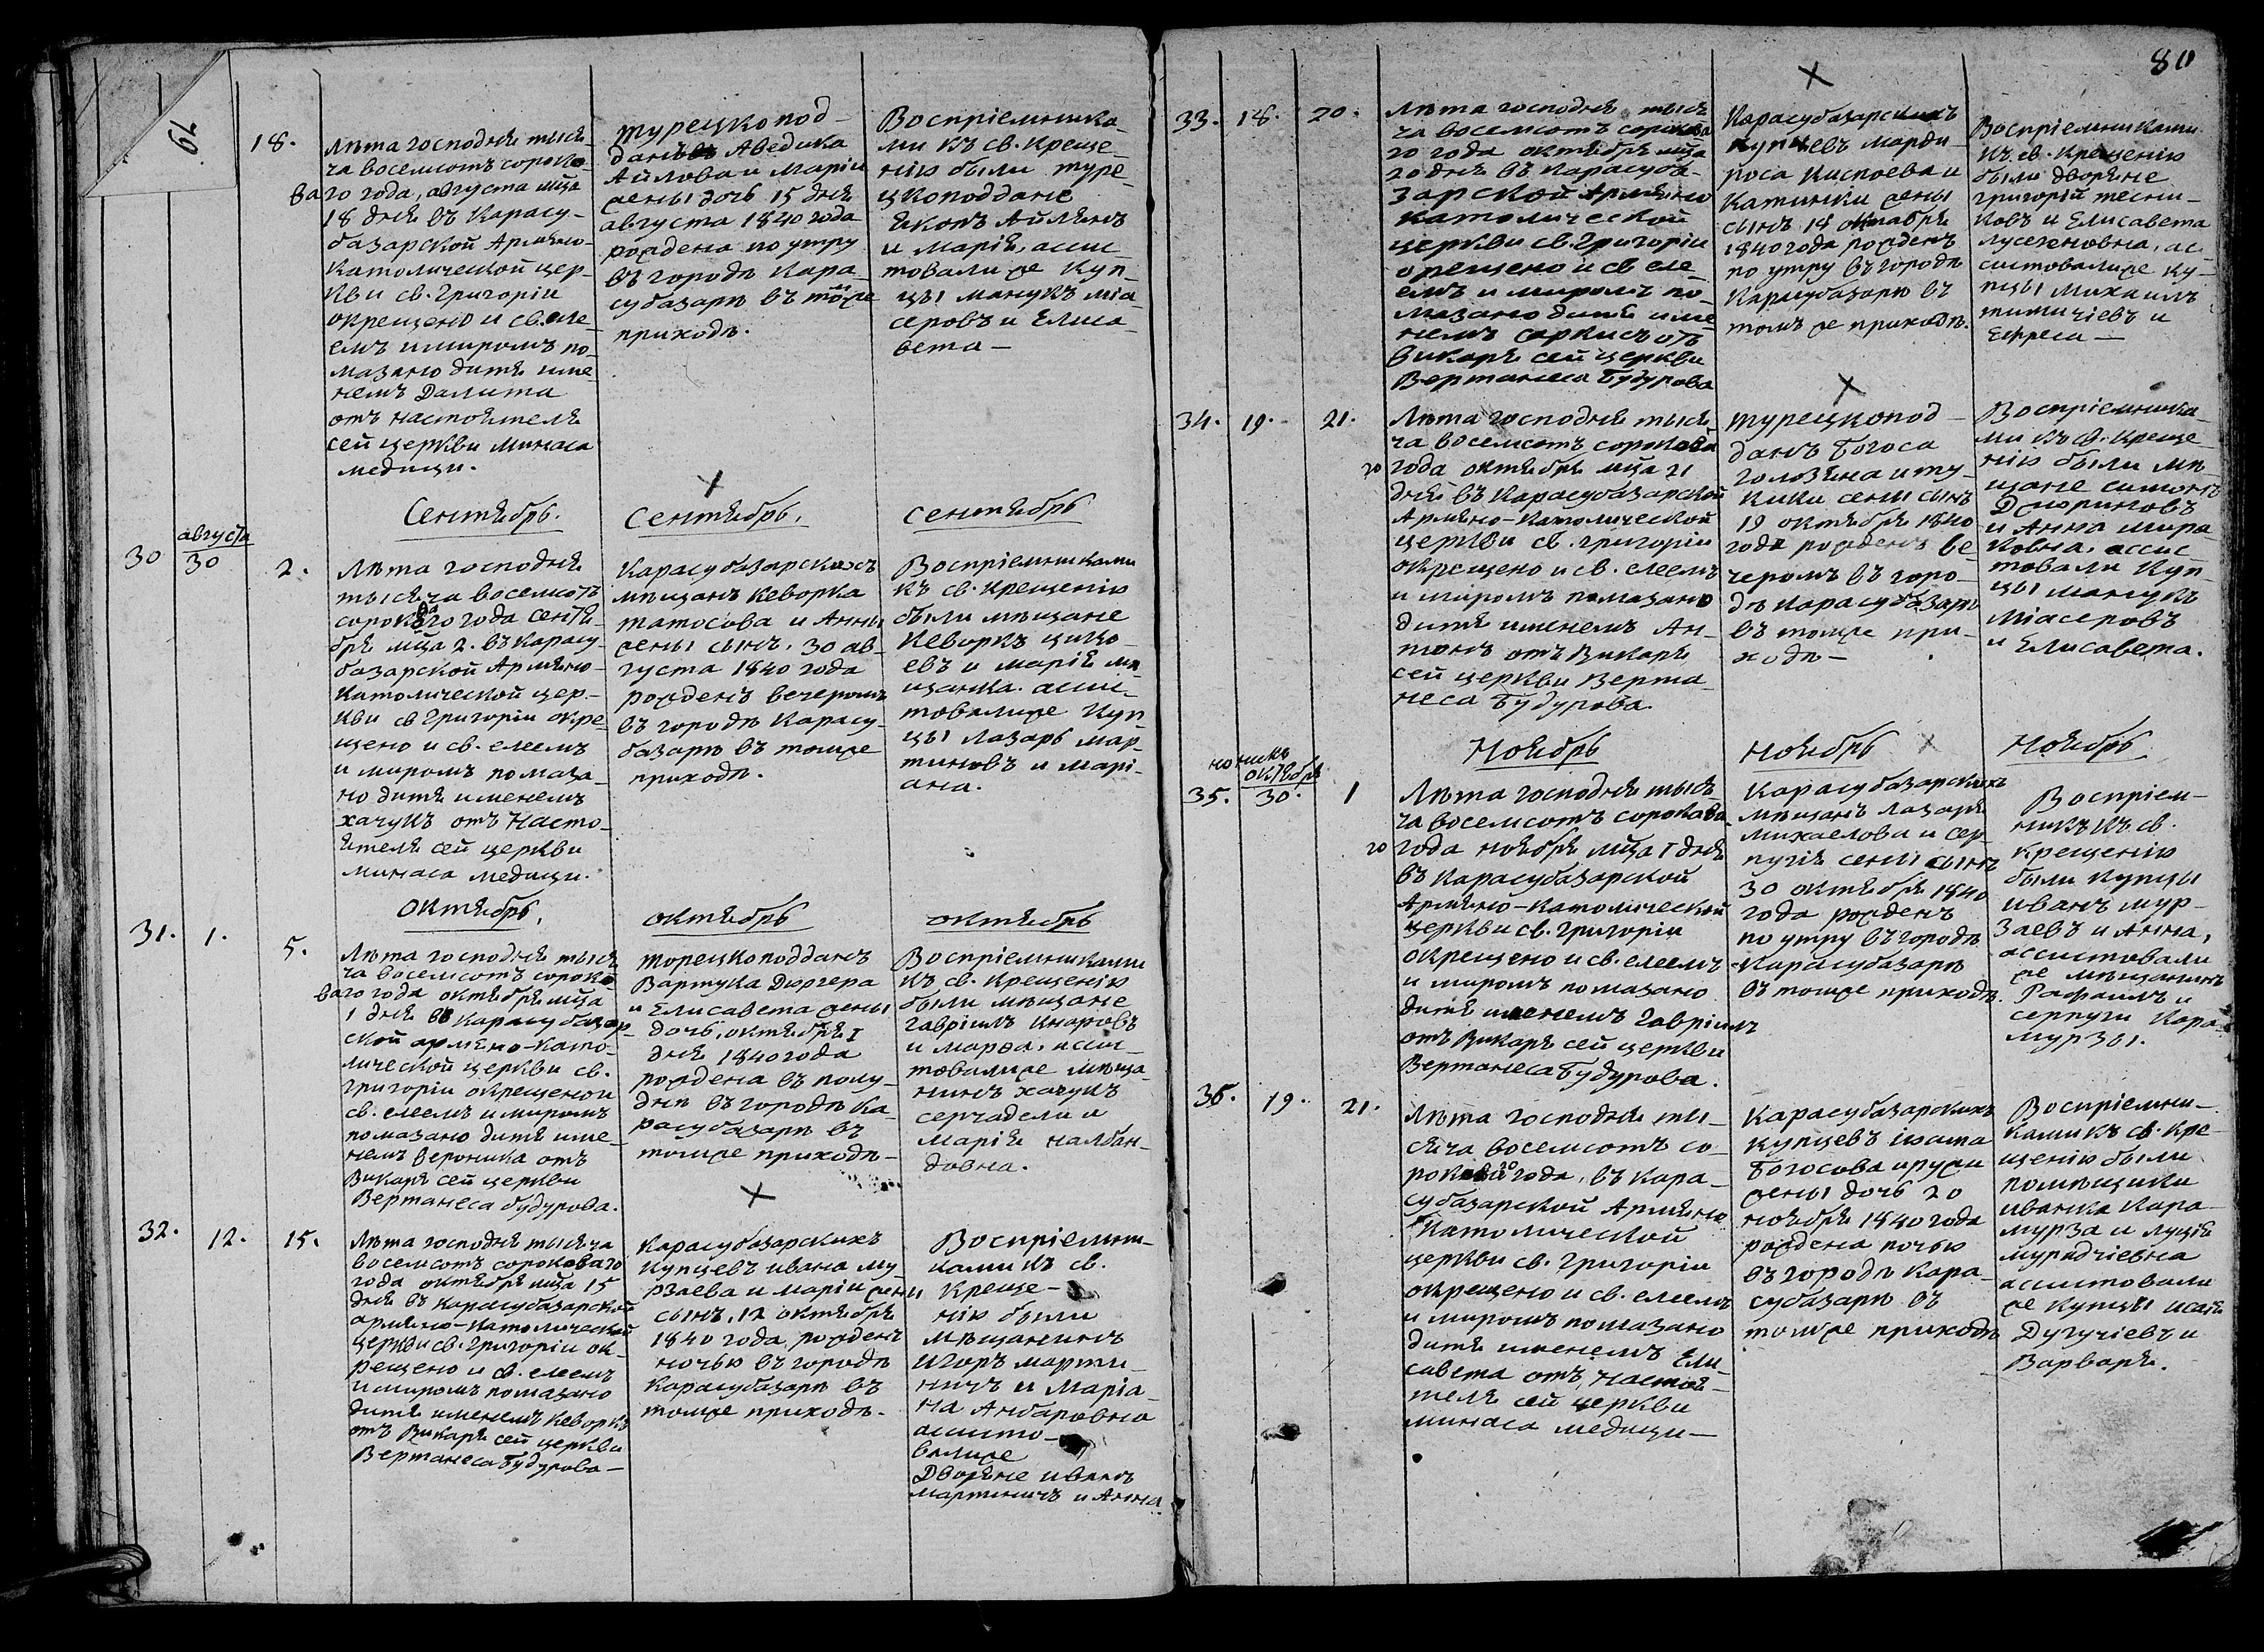 79
18.
Лѣта господня тыся-
ча восемсотъ сороко-
ваго года, августа мца
18 дня въ Карасу-
базарской Армяно-
Католической цер-
кви св. Григорія
окрещено и св. еле-
емъ и миромъ по-
мазано дитя име-
немъ Далита
отъ настоятеля
сей церкви Минаса
медици.
турецкопод-
данъ Аведика
Айлова и Маріи
жены дочь 15 дня
августа 1840 года
рождена по утру
въ городѣ Кара-
субазарѣ въ томже
приходѣ.
Воспріемника-
ми къ св. Креще-
нію были туре-
цкоподдане
Якопъ Айлянъ
и Марія, ассис-
товали же Куп-
цы манукъ міа-
серовъ и Елиса-
вета —
Сентябрь.
Сентябрь.
Сентябрь
30
августа
30
2.
Лѣта господня
тысяча восемсотъ
сороковаго года сентя-
бря мца 2. въ Карасу-
базарской Армяно-
Католической цер-
кви св Григоріи окре-
щено и св. елеемъ
и миромъ помаза-
но дитя именемъ
хачукъ отъ насто-
ятеля сей церкви
минаса медици.
Карасубазарскихъ
мѣщанъ Кеворка
татосова и Анны
жены сынъ, 30 ав-
густа 1840 года
рожденъ вечеромъ
въ городѣ Карасу-
базарѣ въ томже
приходѣ.
Воспріемниками
къ св. Крещенію
были мѣщане
Кеворкъ
и марія мѣ-
щанка. ассис-
товали же Куп-
цы Лазарь мар-
тиновъ и марі-
ана.
октябрь.
октябрь
октябрь
31.
1.
5.
Лѣта господня тыся
ча восемсотъ сороко
ваго года октября мца
1 дня въ Карасубазар-
ской армяно-Като-
лической церкви св.
григоріи окрещено и
св. елеемъ и миромъ
помазано дитя име-
немъ вероника отъ
Викаря сей церкви
Вертанеса будурова.
торецкоподданъ
Вартука Дюргера
и Елисавета жены
дочь, октября 1
дня 1840 года
рождена въ полу-
дня въ городѣ Ка-
расубазарѣ въ
томже приходѣ —
Воспріемниками
къ св. Крещенію
были мѣщане
гавріилъ Кноровъ
и марѳа, ассис-
товали же мѣща-
нинъ хачукъ
серчадели и
Марія налбан-
довна.
32.
12.
15.
Лѣта господня тысяча
восемсотъ сороковаго
года октября мца 15
дня въ Карасубазарской
армяно-Католической
церкви св. григоріи ок-
рещено и св. елеемъ
и миромъ помазано
дитя именемъ Кеворкъ
отъ Викаря сей церкви
Вертанеса Будурова —
Карасубазарскихъ
Купцевъ ивана му-
рзаева и маріи жены
сынъ, 12 октября
1840 года, рожденъ
ночью въ городѣ
Карасубазарѣ въ
томже приходѣ.
Воспріемни-
ками къ св.
Креще-
нію были
мѣщанинъ
Игоръ марти-
ничъ и Маріа-
на Анбаровна
ассисто-
вали же
Дворяне иванъ
мартиничъ и Анна
80
33.
18.
20.
Лѣта господня тыся
ча восемсотъ сорокова
го года октября мца
20 дня въ Карасуба-
зарской Армяно
католической
церкви св. Григоріи
окрещено и св еле-
емъ и миромъ по-
мазано дитя име-
немъ саркисъ отъ
Викаря сей церкви
Вертанеса Будурова
Карасубазарскихъ
купцевъ марди-
роса Киспоева и
Катинки жены
сынъ 18 октября
1840 года рожденъ
по утру въ городѣ
Карасубазарѣ въ
томъ же приходѣ.
Воспріемниками
къ св. Крещенію
были дворяне
григорій тесни-
ковъ и Елисавета
лусегеновна, ас-
систовали же Ку-
пцы михаилъ
тимичіевъ и
Ефреса —
34.
19.
21.
Лѣта господня тыся
ча восемсотъ сорокова
го года октября мца 21
дня въ Карасубазарской
Армяно-Католической
церкви св. григоріи
окрещено и св. елеемъ
и миромъ помазано
дитя именемъ Ан-
тонъ отъ Викаря
сей церкви Верта-
неса Будурова.
турецкопод-
данъ Богоса
голозяна и ту-
кики жены сынъ
19 октября 1840
года рожденъ ве
черомъ въ горо-
дѣ Карасубазарѣ
въ томже при-
ходѣ —
Воспріемника-
ми къ св. Креще
нію были мѣ-
щане симонъ
Дмюриковъ
и Анна мира
ковна, ассис
товали Куп-
цы манукъ
міасеровъ
и Елисавета.
Ноябрь
ноябрь
Ноябрь
35.
октября
30.
1
Лѣта господня тыся-
ча восемсотъ сорокова
го года ноября мца 1 дня
въ Карасубазарской
Армяно-Католической
церкви св. григоріи
окрещено и св. елеемъ
и миромъ помазано
дитя именемъ Гавріилъ
отъ Викаря сей церкви
Вертанеса Будурова.
Карасубазарскихъ
мѣщанъ лазаря
михаелова и сер-
пугія жены сынъ
30 октября 1840
года рожденъ
по утру въ городѣ
Карасубазарѣ
въ томже приходѣ.
Воспріем-
никъ къ св.
крещенію
были купцы
иванъ мур-
заевъ и Анна,
ассистовали
же мѣщанинъ
Рафаилъ и
серпуги Кара-
мурзы.
36.
19.
21.
Лѣта господня ты-
сяча восемсотъ со-
роковаго года, въ Кара-
субазарской Армяно
Католической
церкви св. григоріи
окрещено и св. елеемъ
и миромъ помазано
дитя именемъ Ели-
савета отъ, настоя-
теля сей церкви
минаса медици —
Карасубазарскихъ
купцевъ
Богосова и
жены дочь 20
ноября 1840 года
рождена ночью
въ городѣ Кара-
субазарѣ въ
томже приходѣ
Воспріемни-
ками къ св. Кре-
щенію были
помѣщики
иванка Кара-
мурза и луція
муридчіевна
ассистовали
же купцы исаія
Дугучіевъ и
Варваря.